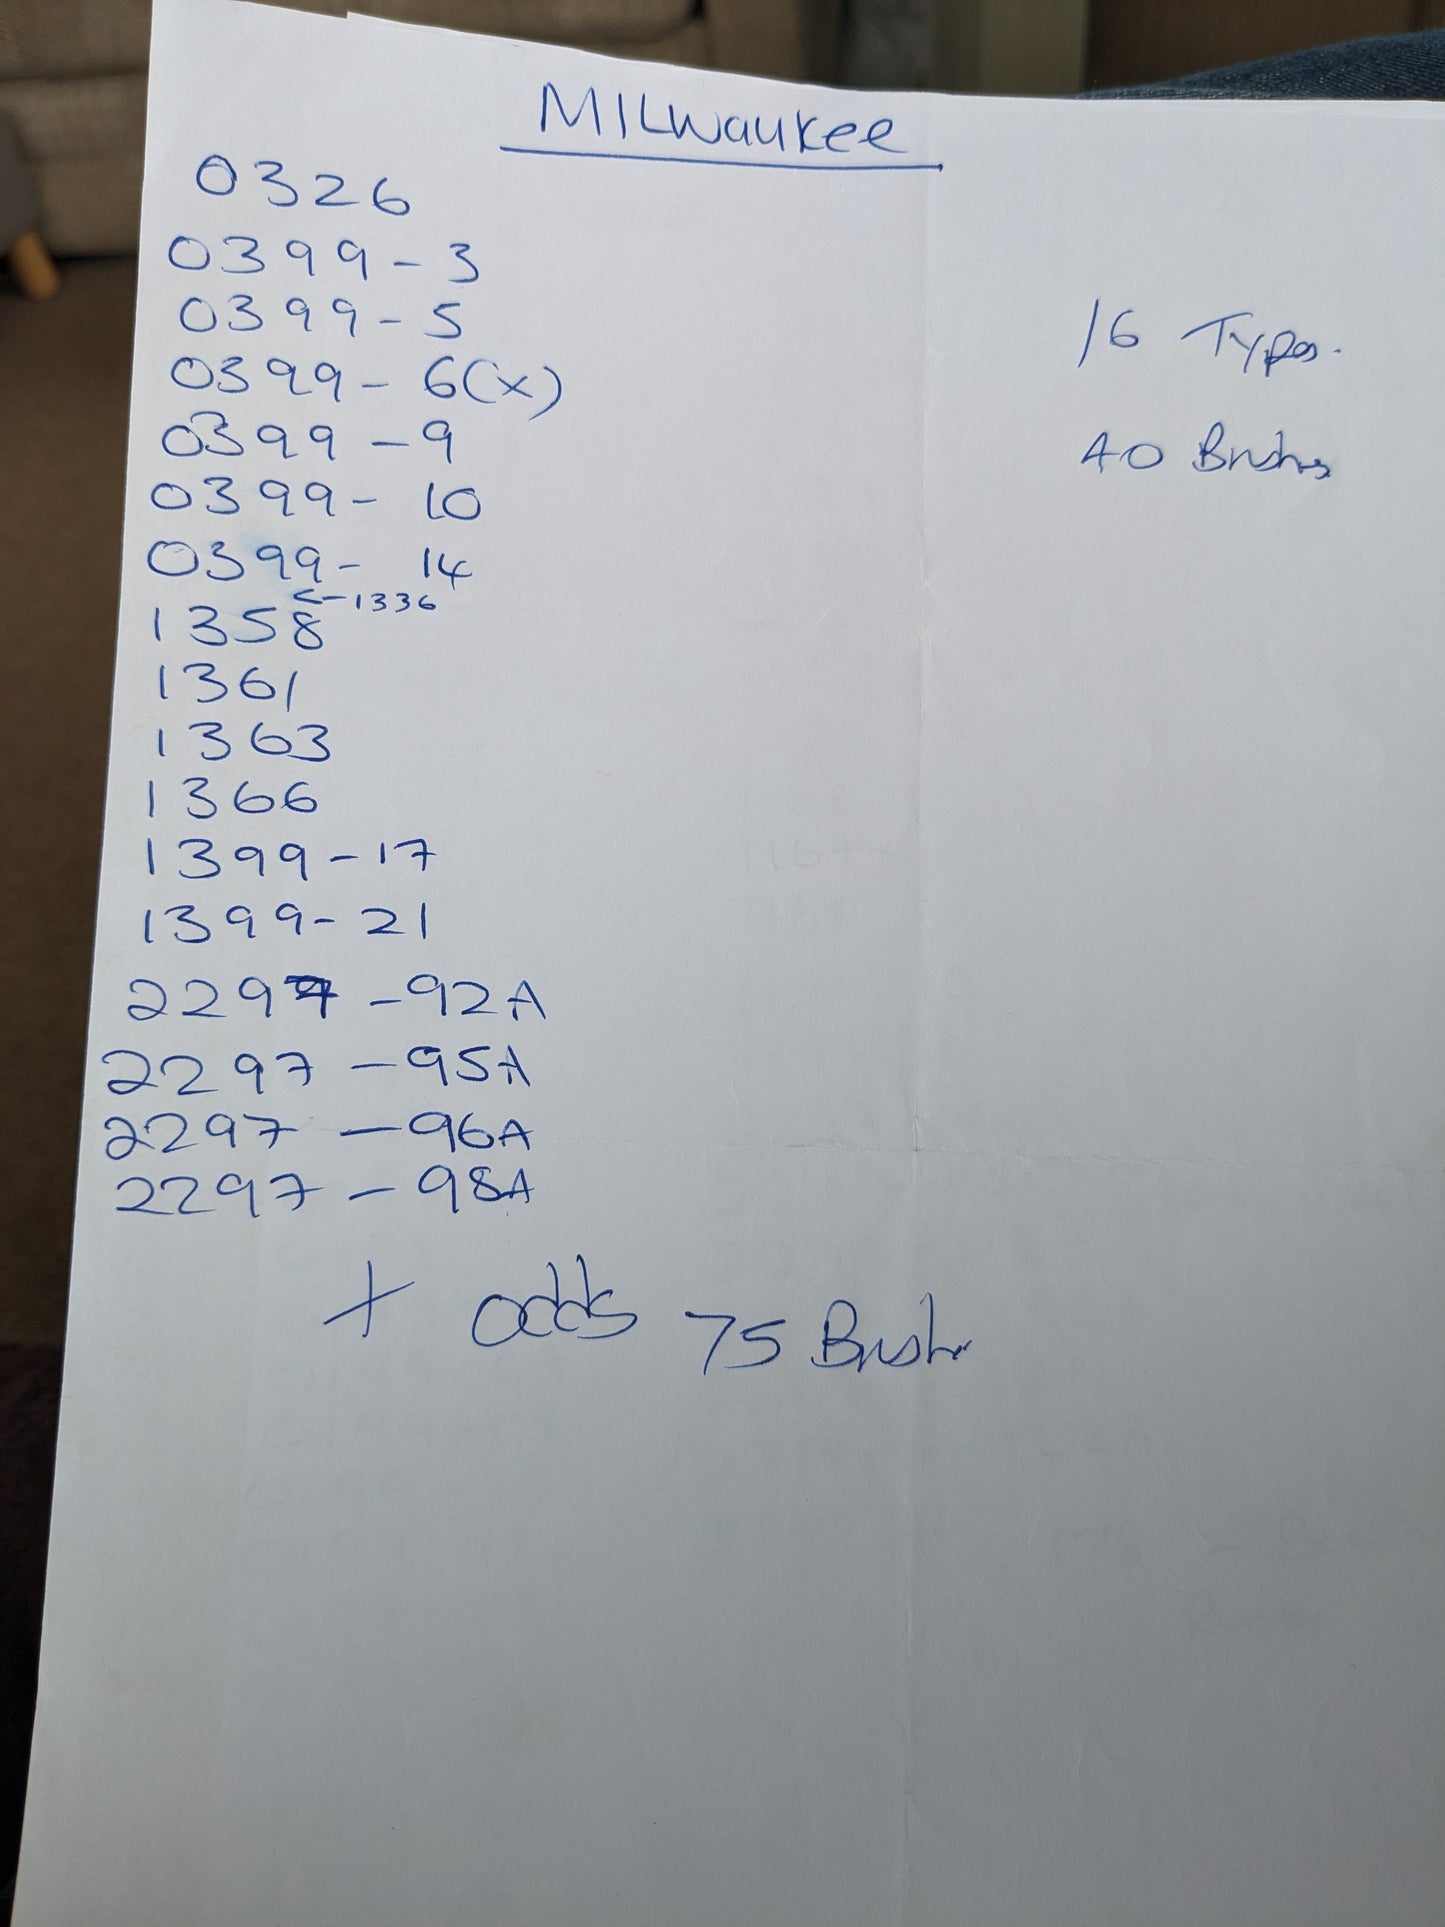 MILWaukee
0326
0399-3
0399-5
0399-6(x)
0399-9
0399-10
0399-14
←1336
1358
1361
1363
1366
1399-17
1399-21
2297-92A
2297-95A
2297-96A
2297-98A
+ odds 75 Brushes
16 Types.
40 Brushes